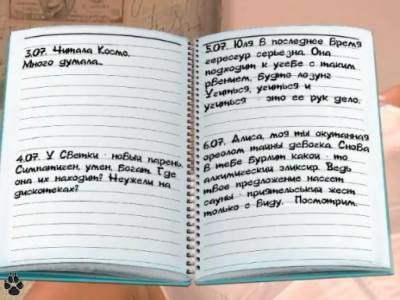 3.07. Читала Космо.
Много думала...
4.07. У Светки - новый парень.
Симпатичен, умен, богат. Где
она их находит? Неужели на
дискотеках?
5.07. Юля в последнее время
чересчур серьезна. Она
подходит к учебе с таким
рвением, будто лозунг
Учиться, учиться и
учиться - это ее рук дело.
6.07. Алиса, моя ты окутанная
ореолом тайны девочка. Снова
в тебе бурлит какой - то
алхимический эликсир. Ведь
твое предложение насчет
сауны - приятельский жест
только с виду. Посмотрим.